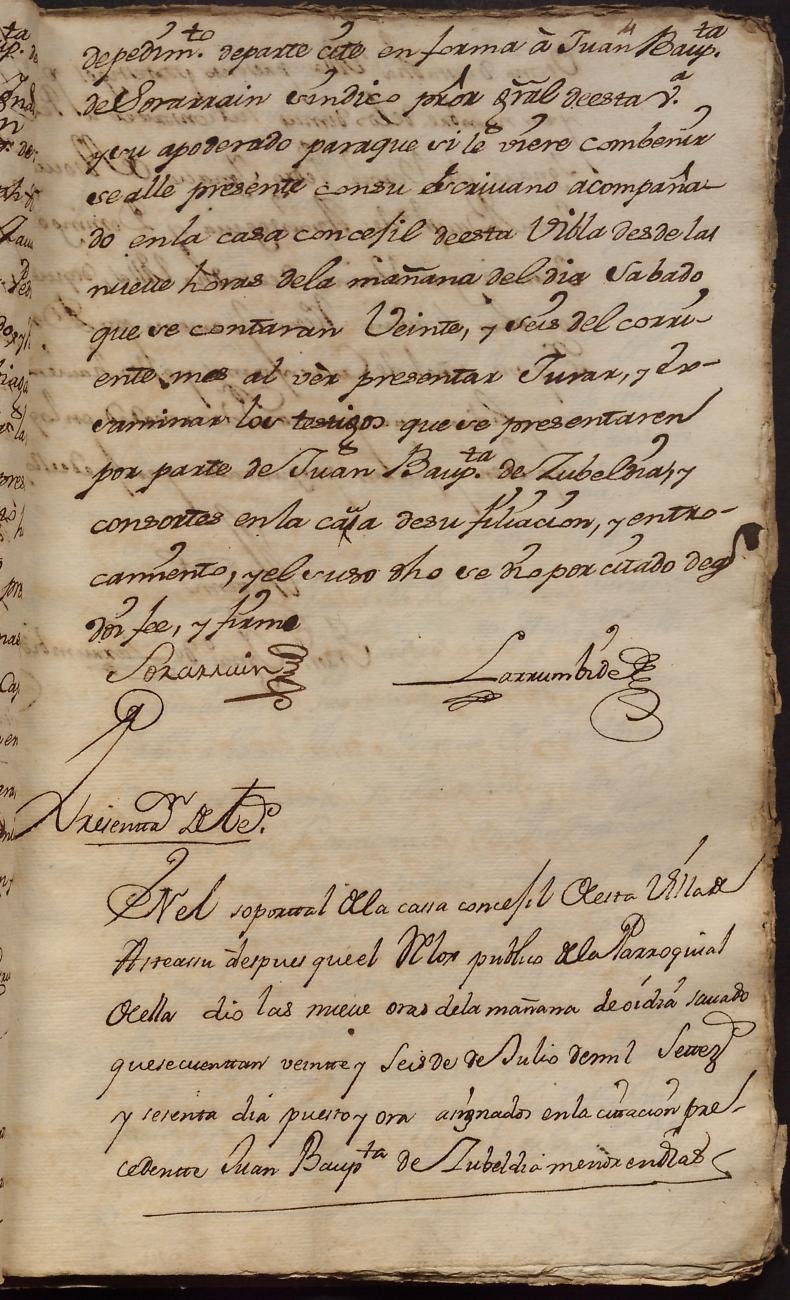 depedim.to departe cite en forma à Juan Baup.ta
de Sorarrain sindico prõr gñral deesta v.a
y su apoderado paraque si le viere combenir
se alle presente consu escriuano acompaña-
do enla casa concejil deesta Villa desdelas
nueue horas dela mañana del dia Sabado
que se contaran Veinte, y seis del corri-
ente mes al vèr presentar Jurar, y Ex-
saminar los testigos que se presentaren
por parte de Juan Baup.ta de Zubeldia, y
consortes en la caũa desu filiacion, y entro-
camiento, y el suso dho se dio por citado deq
doi fee, y firmo
Sorarrain
Larrumbide
Presentt.on de te.s
ENel soporttal dela cassa concejil de esta Villa de
Asteassu despues que el Relox publico dela Parroquial
de ella dio las nueue oras dela mañana de oi dia sauado
quesecuenttan veintte y seis de de Julio demil Settez.s
y sesenta dia puesto y ora asignados en la citacion pre-
cedentte Juan Baup.ta de Zubeldia menor en dias